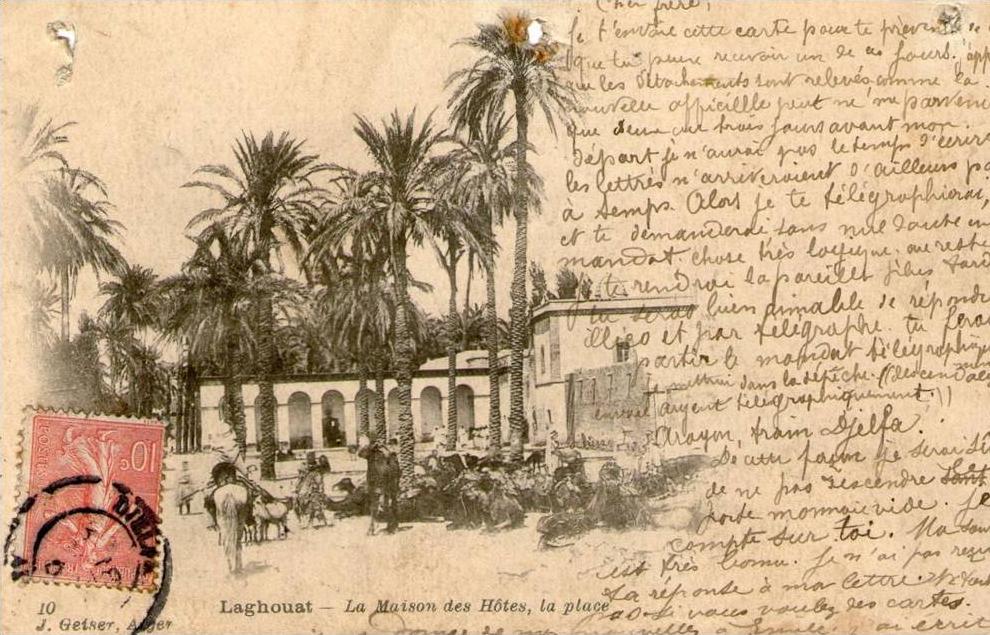 Cher frère,
Je t'envoie cette carte pour te prévenir
que tu peux recevoir un de ces jours.
que les détachements sont relevés comme la
nouvelle officielle peut ne me parvenir
que deux ou trois jours avant mon
départ je n'aurai pas le temps d'écrire
les lettres n'arriveraient d'ailleurs pas
à temps. Alors je te télégraphierai,
et te demanderai sans nul doute un
mandat chose très logique, au reste
te rendrai la pareille plus tard
Tu serais bien aimable de répondre
illico et par télégraphe. tu feras
partir le mandat télégraphique
dans la dépêche. (descendals
envoie argent télégraphiquement))
Arayon, train Djelfa.
De cette façon je serai sûr
de ne pas redescendre sont
porte monnaie vide. Je
compte sur toi. Ma santé
est très bonne. Je n'ai pas reçu
la réponse à ma lettre.
si vous voulez des cartes.
de mes nouvelles à Emile j'ai écrit
POSTES
10c
10
Laghouat – La Maison des Hôtes, la place
J. Geiser, Alger